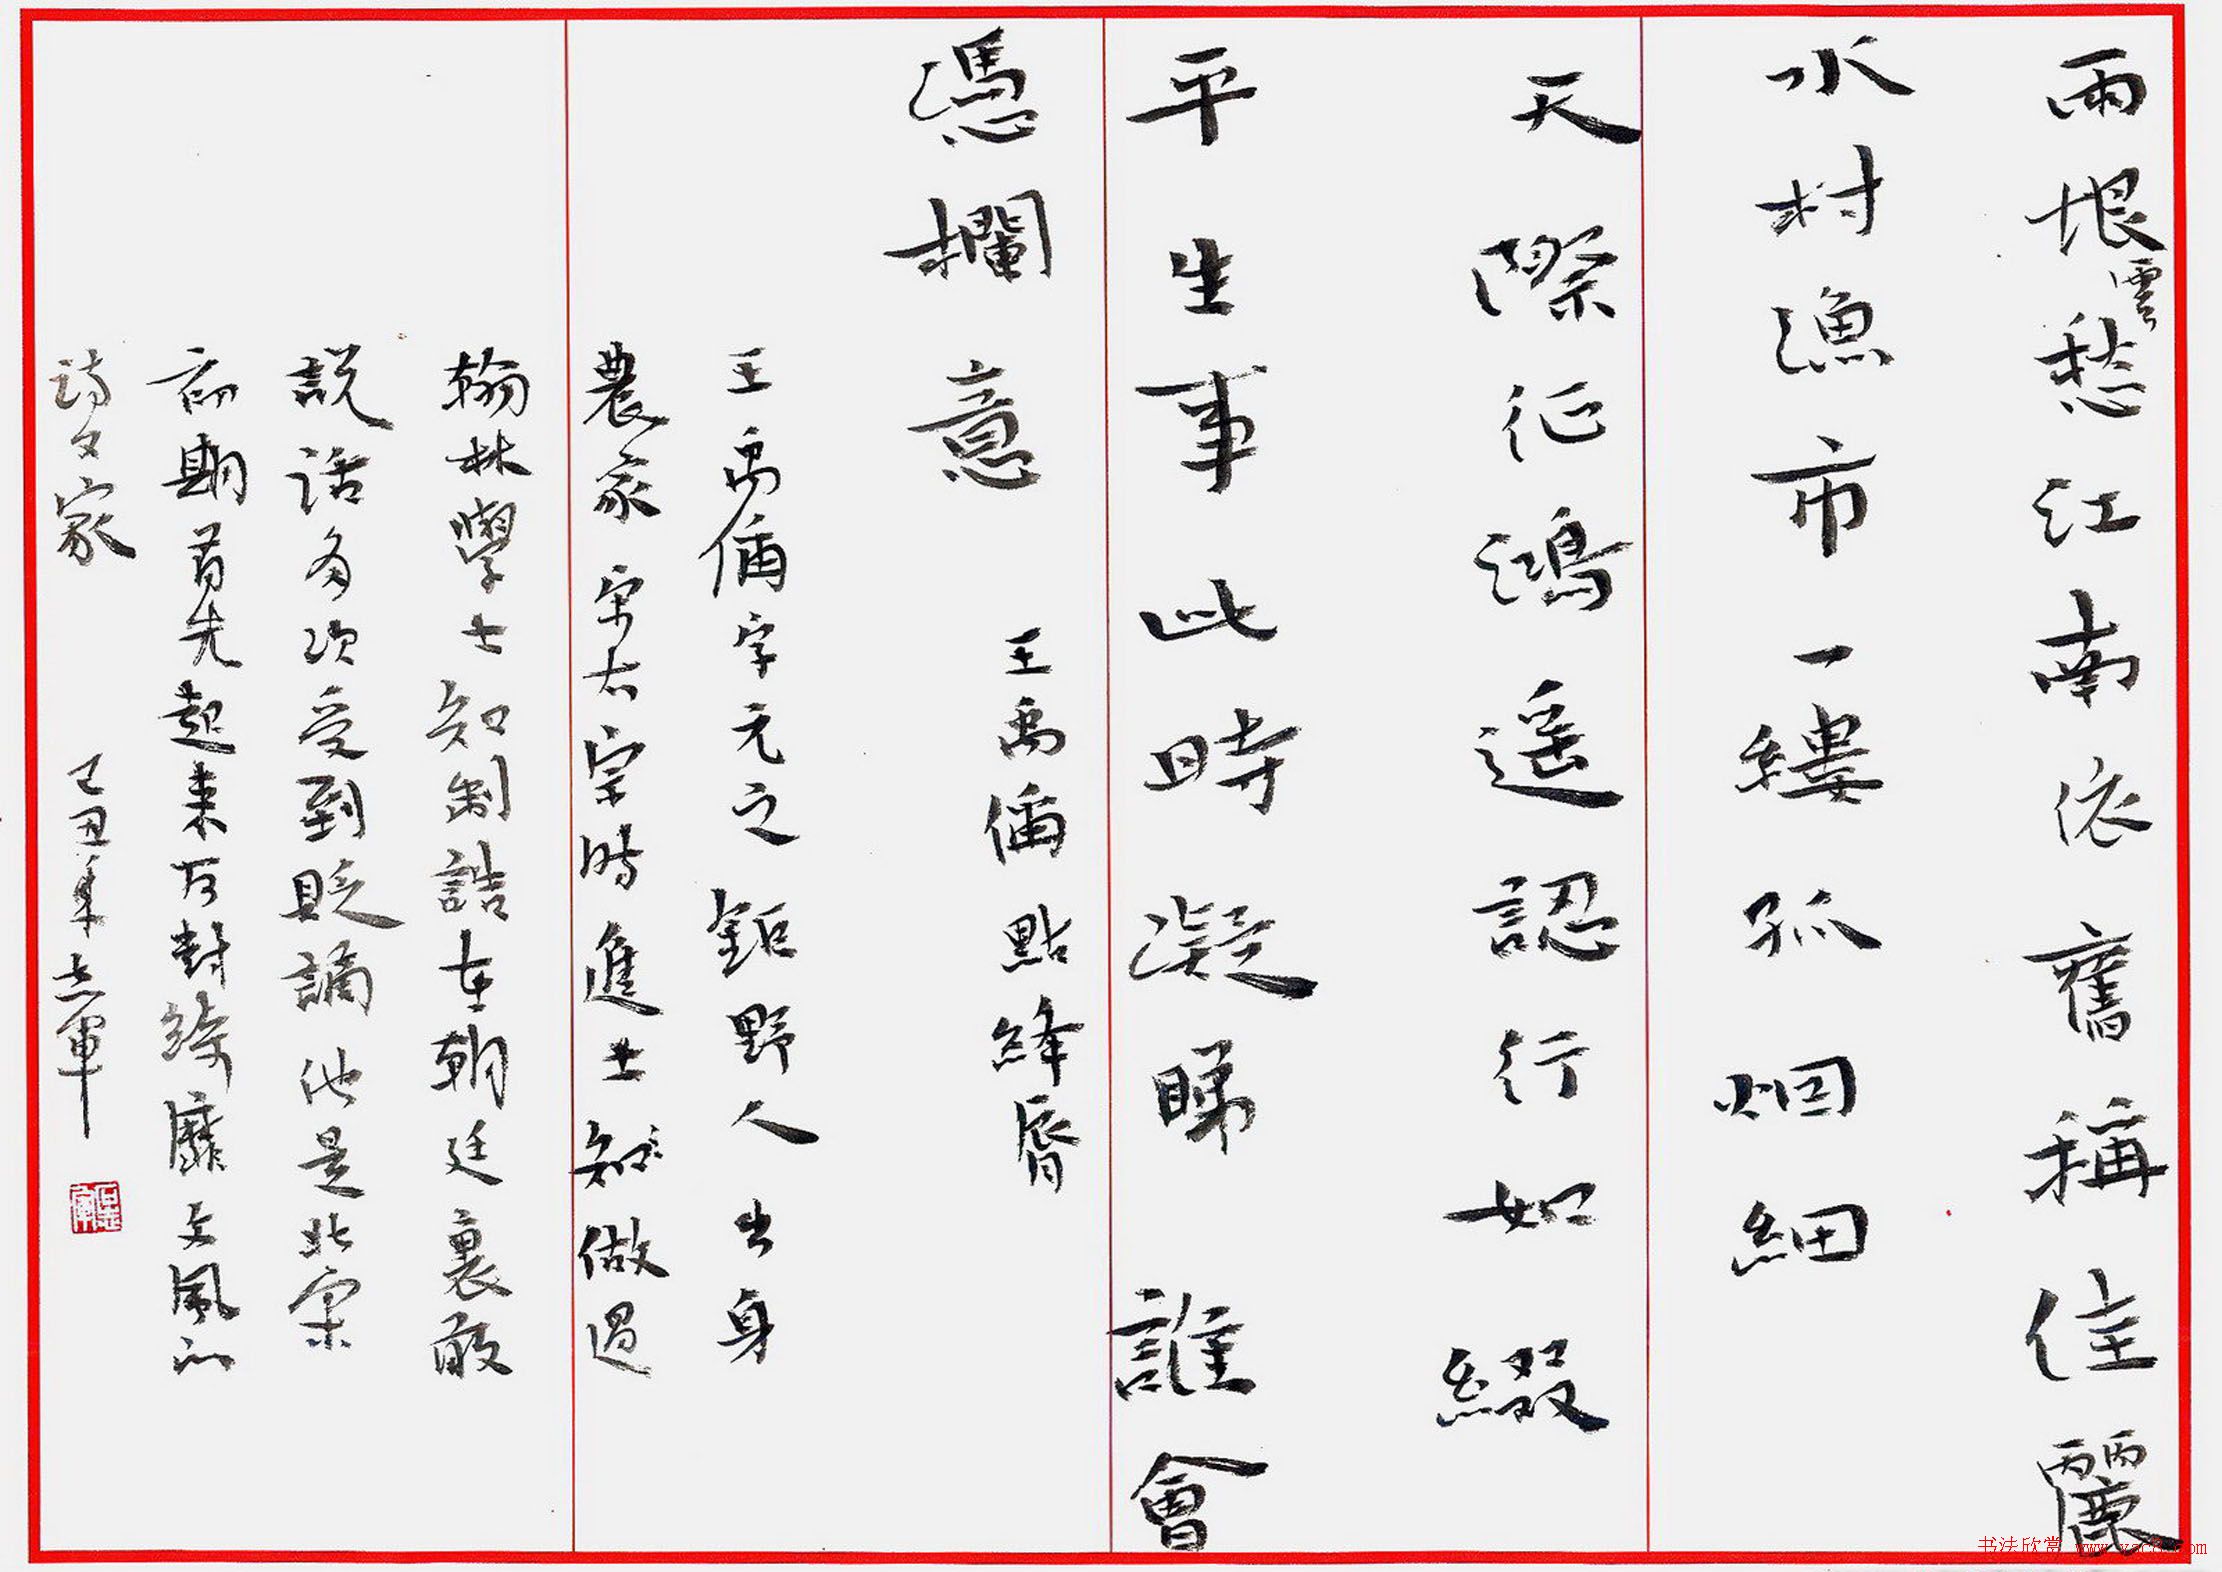 雨恨雲愁江南依舊稱佳麗
水村漁市一縷孤烟細
天際征鴻遥認行如綴
平生事此時凝睇誰會
憑欄意 王禹偁點絳唇
王禹偁字元之鉅野人出身
農家宋太宗時進士 做過
翰林學士知制誥在朝廷裏敢
説话多次受到貶謫他是北宋
初期首先起来反對綺靡文風的
詩文家 己丑年志軍
书法欣赏 www.yac8.com